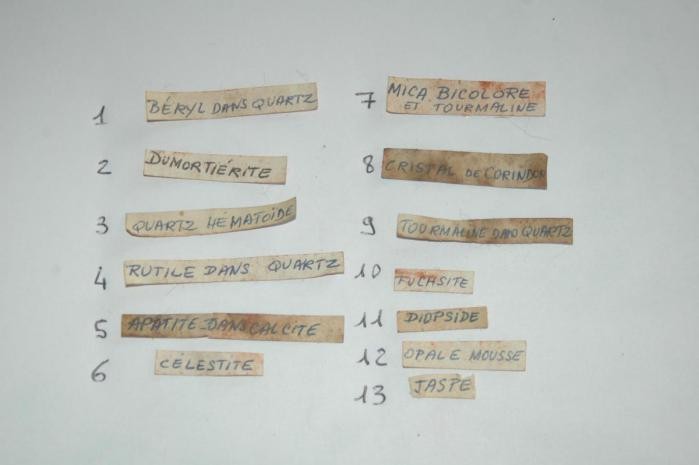 1 BÉRYL DANS QUARTZ
2 DUMORTIÉRITE
3 QUARTZ HÉMATOÏDE
4 RUTILE DANS QUARTZ
5 APATITE DANS CALCITE
6 CÉLESTITE
7 MICA BICOLORE
ET TOURMALINE
8 CRISTAL DE CORINDON
9 TOURMALINE DANS QUARTZ
10 FUCHSITE
11 DIOPSIDE
12 OPALE MOUSSE
13 JASPE